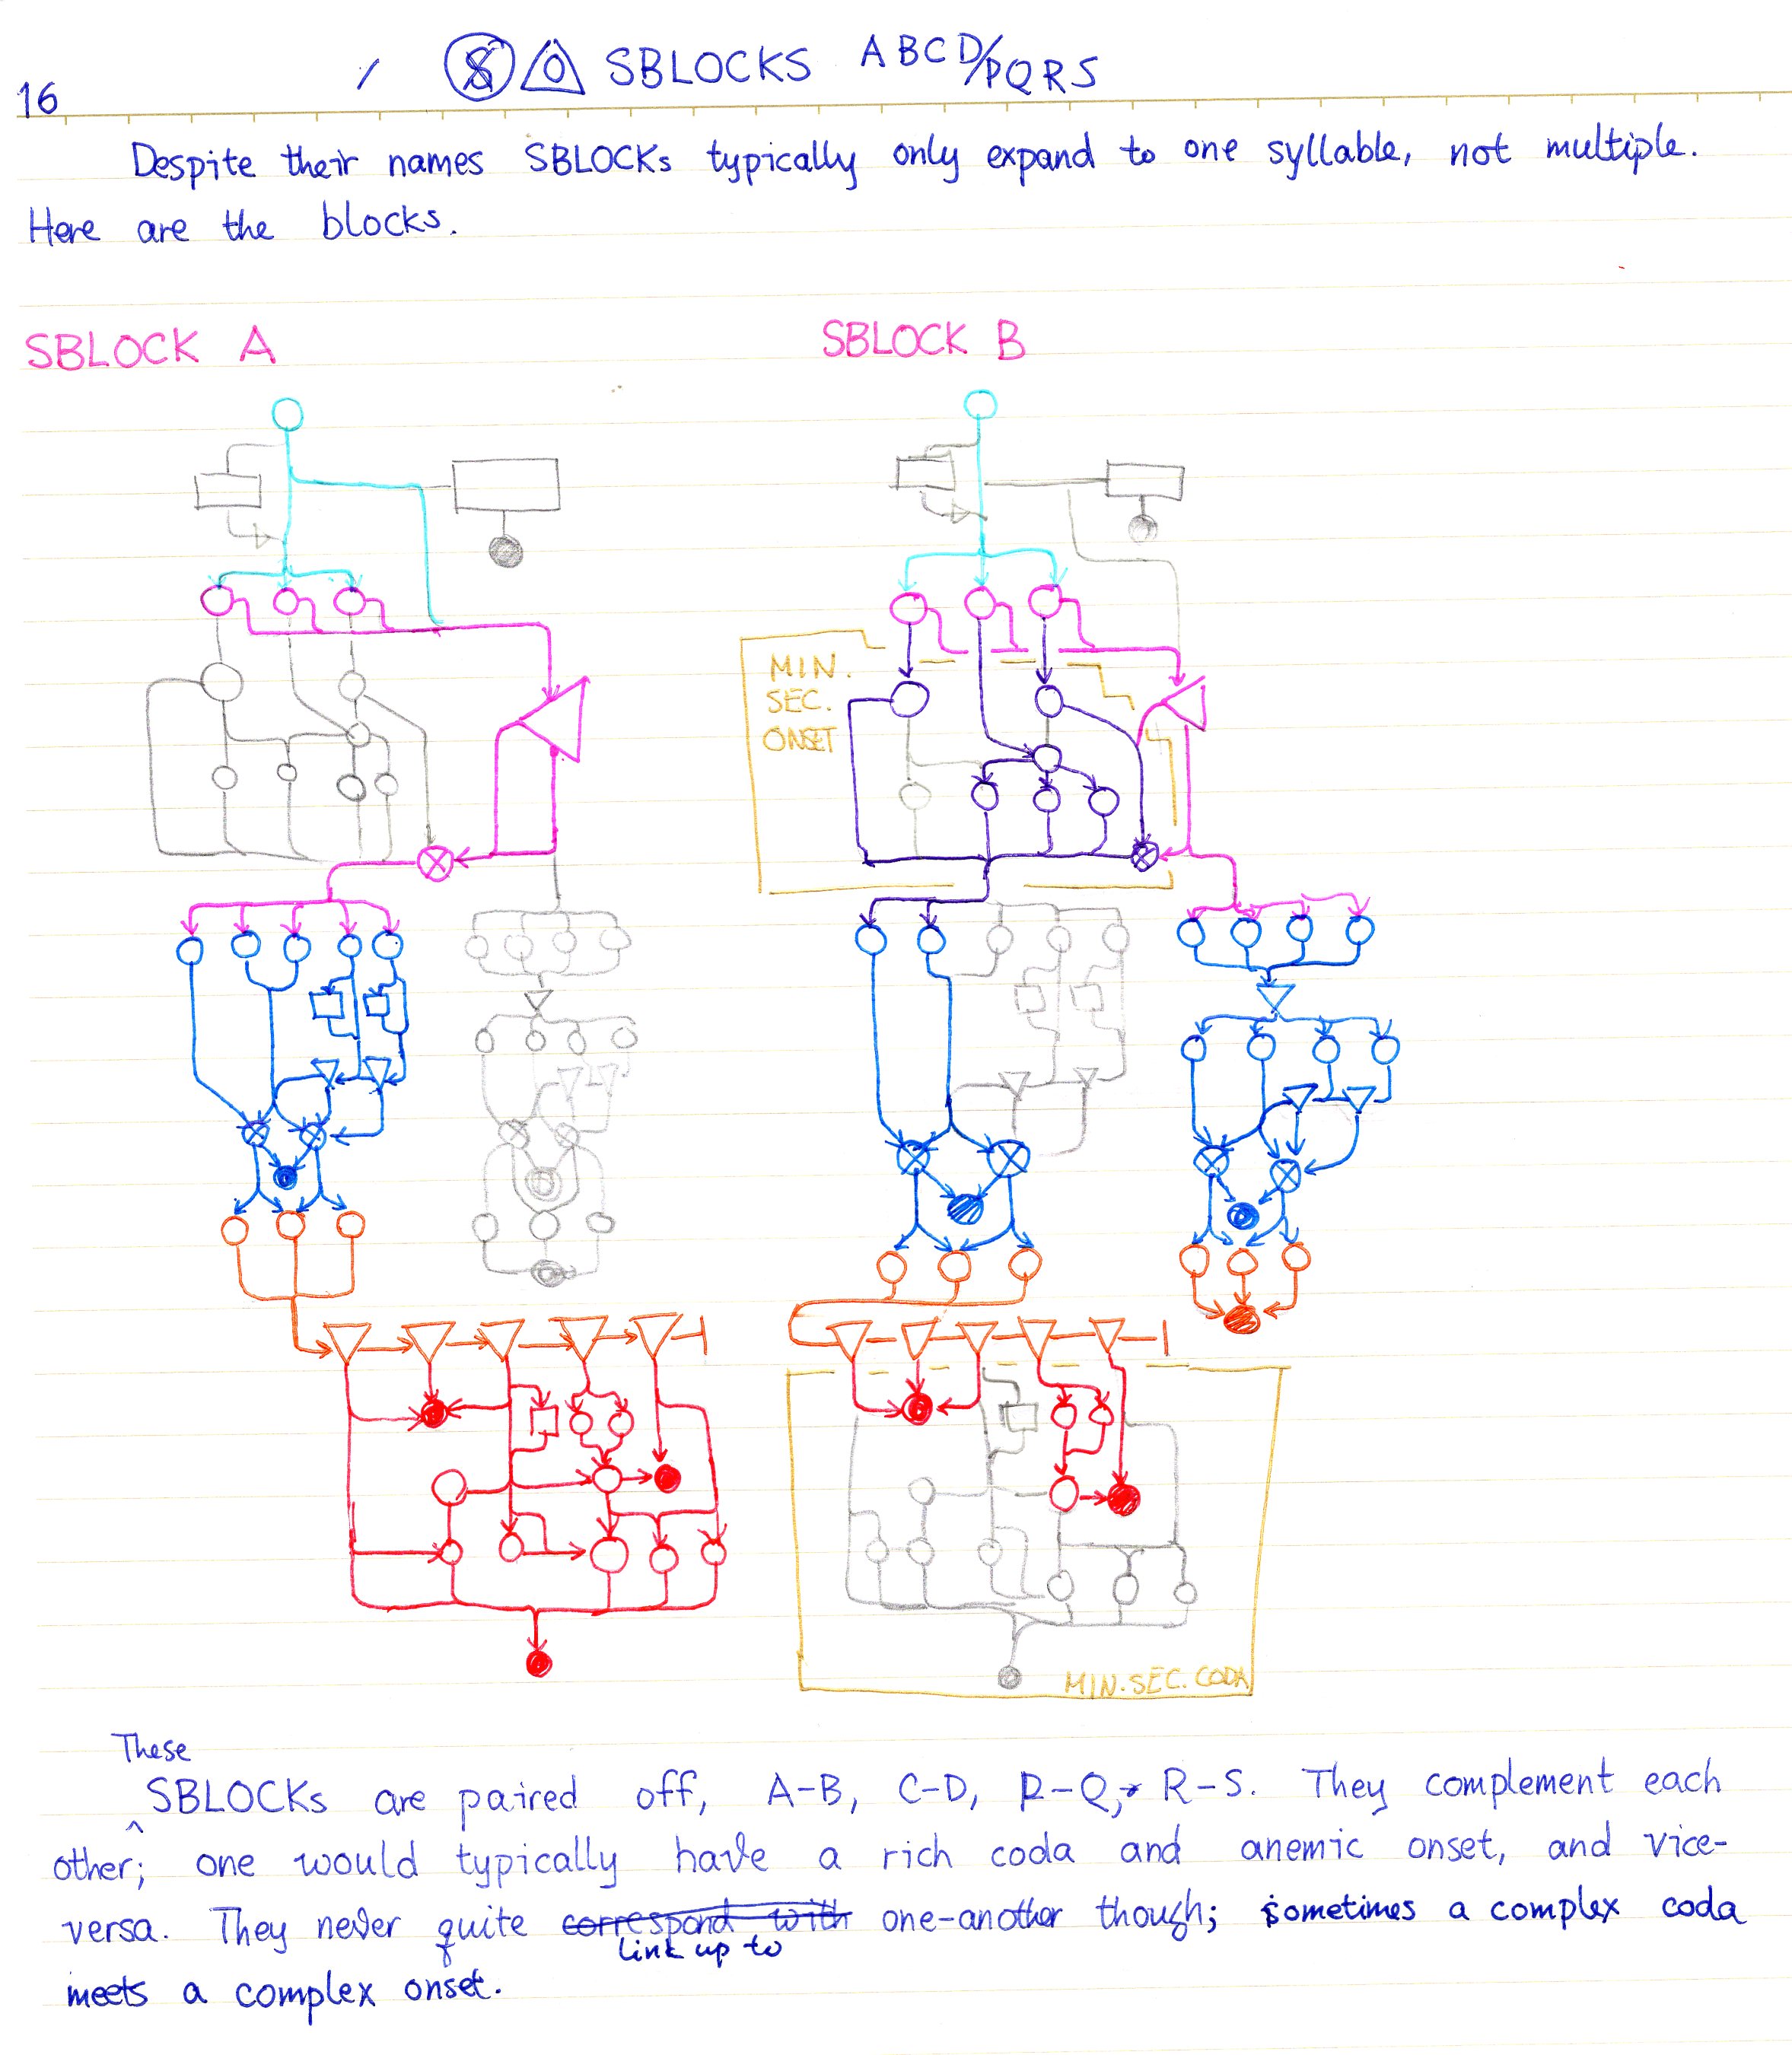 16
/ Ⓢ △ SBLOCKS ABCD/PQRS
Despite their names SBLOCKs typically only expand to one syllable, not multiple.
Here are the blocks.
SBLOCK A
SBLOCK B
MIN.
SEC.
ONSET
MIN.SEC.CODA
These
SBLOCKs are paired off, A-B, C-D, P-Q, R-S. They complement each
other; one would typically have a rich coda and anemic onset, and vice-
versa. They never quite correspond with one-another though; sometimes a complex coda
link up to
meets a complex onset.